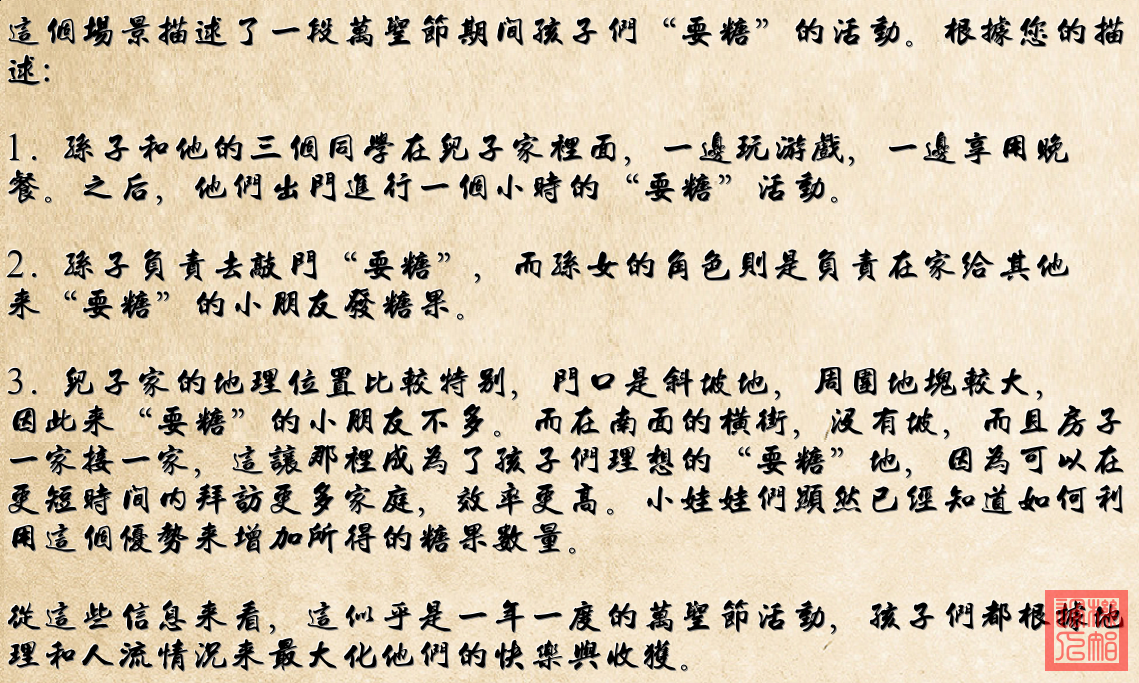 這個場景描述了一段萬聖節期间孩子們“耍糖”的活動。根據您的描
述:
1. 孫子和他的三個同學在兒子家裡面，一邊玩游戲，一邊享用晚
餐。之后，他們出門進行一個小時的“耍糖”活動。
2. 孫子負責去敲門“耍糖”，而孫女的角色則是負責在家给其他
来“耍糖”的小朋友發糖果。
3. 兒子家的地理位置比較特别，門口是斜坡地，周圍地塊較大，
因此来“耍糖”的小朋友不多。而在南面的橫街，沒有坡，而且房子
一家接一家，這讓那裡成為了孩子們理想的“耍糖”地，因為可以在
更短時间内拜訪更多家庭，效率更高。小娃娃們顯然已經知道如何利
用這個優勢来增加所得的糖果数量。
從這些信息来看，這似乎是一年一度的萬聖節活動，孩子們都根據地
理和人流情況来最大化他們的快樂與收獲。